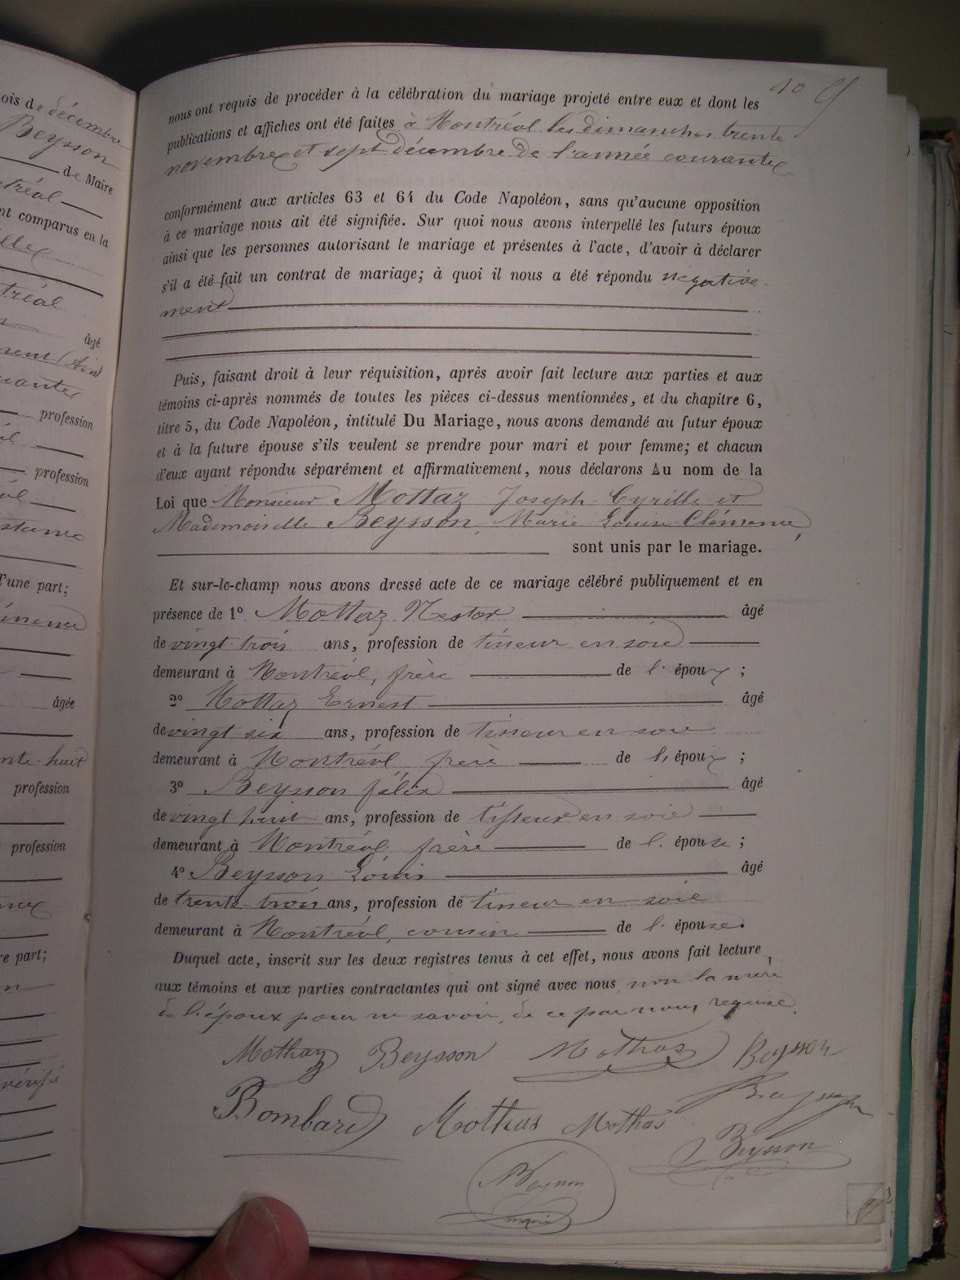 ois de décembre
Beysson
de Maire
tréal
nt comparus en la
tréal
âgé
profession
profession
d'une part;
âgée
nte huit
profession
profession
re part;
10
nous ont requis de procéder à la célébration du mariage projeté entre eux et dont les
publications et affiches ont été faites à Montréal les dimanches trente
novembre et sept décembre de l'année courante
conformément aux articles 63 et 64 du Code Napoléon, sans qu'aucune opposition
à ce mariage nous ait été signifiée. Sur quoi nous avons interpellé les futurs époux
ainsi que les personnes autorisant le mariage et présentes à l'acte, d'avoir à déclarer
s'il a été fait un contrat de mariage; à quoi il nous a été répondu négative-
ment
Puis, faisant droit à leur réquisition, après avoir fait lecture aux parties et aux
témoins ci-après nommés de toutes les pièces ci-dessus mentionnées, et du chapitre 6,
titre 5, du Code Napoléon, intitulé Du Mariage, nous avons demandé au futur époux
et à la future épouse s'ils veulent se prendre pour mari et pour femme; et chacun
d'eux ayant répondu séparément et affirmativement, nous déclarons Au nom de la
Loi que Monsieur Mottaz Joseph Cyrille et
Mademoiselle Beysson, Marie Louise Clémence,
sont unis par le mariage.
Et sur-le-champ nous avons dressé acte de ce mariage célébré publiquement et en
présence de 1° Mottaz Nestor âgé
de vingt trois ans, profession de tisseur en soie
demeurant à Montréal, frère de l'époux;
2° Mottaz Ernest âgé
de vingt six ans, profession de tisseur en soie
demeurant à Montréal, frère de l'époux;
3° Beysson félix âgé
de vingt huit ans, profession de tisseur en soie
demeurant à Montréal, frère de l'épouse;
4° Beysson Louis âgé
de trente trois ans, profession de tisseur en soie
demeurant à Montréal, cousin de l'épouse.
Duquel acte, inscrit sur les deux registres tenus à cet effet, nous avons fait lecture
aux témoins et aux parties contractantes qui ont signé avec nous, non la mère
de l'époux pour ne savoir, de ce par nous requise.
Mothaz Beysson Mothas Beysson
Bombard Mothas Mothas
Beysson